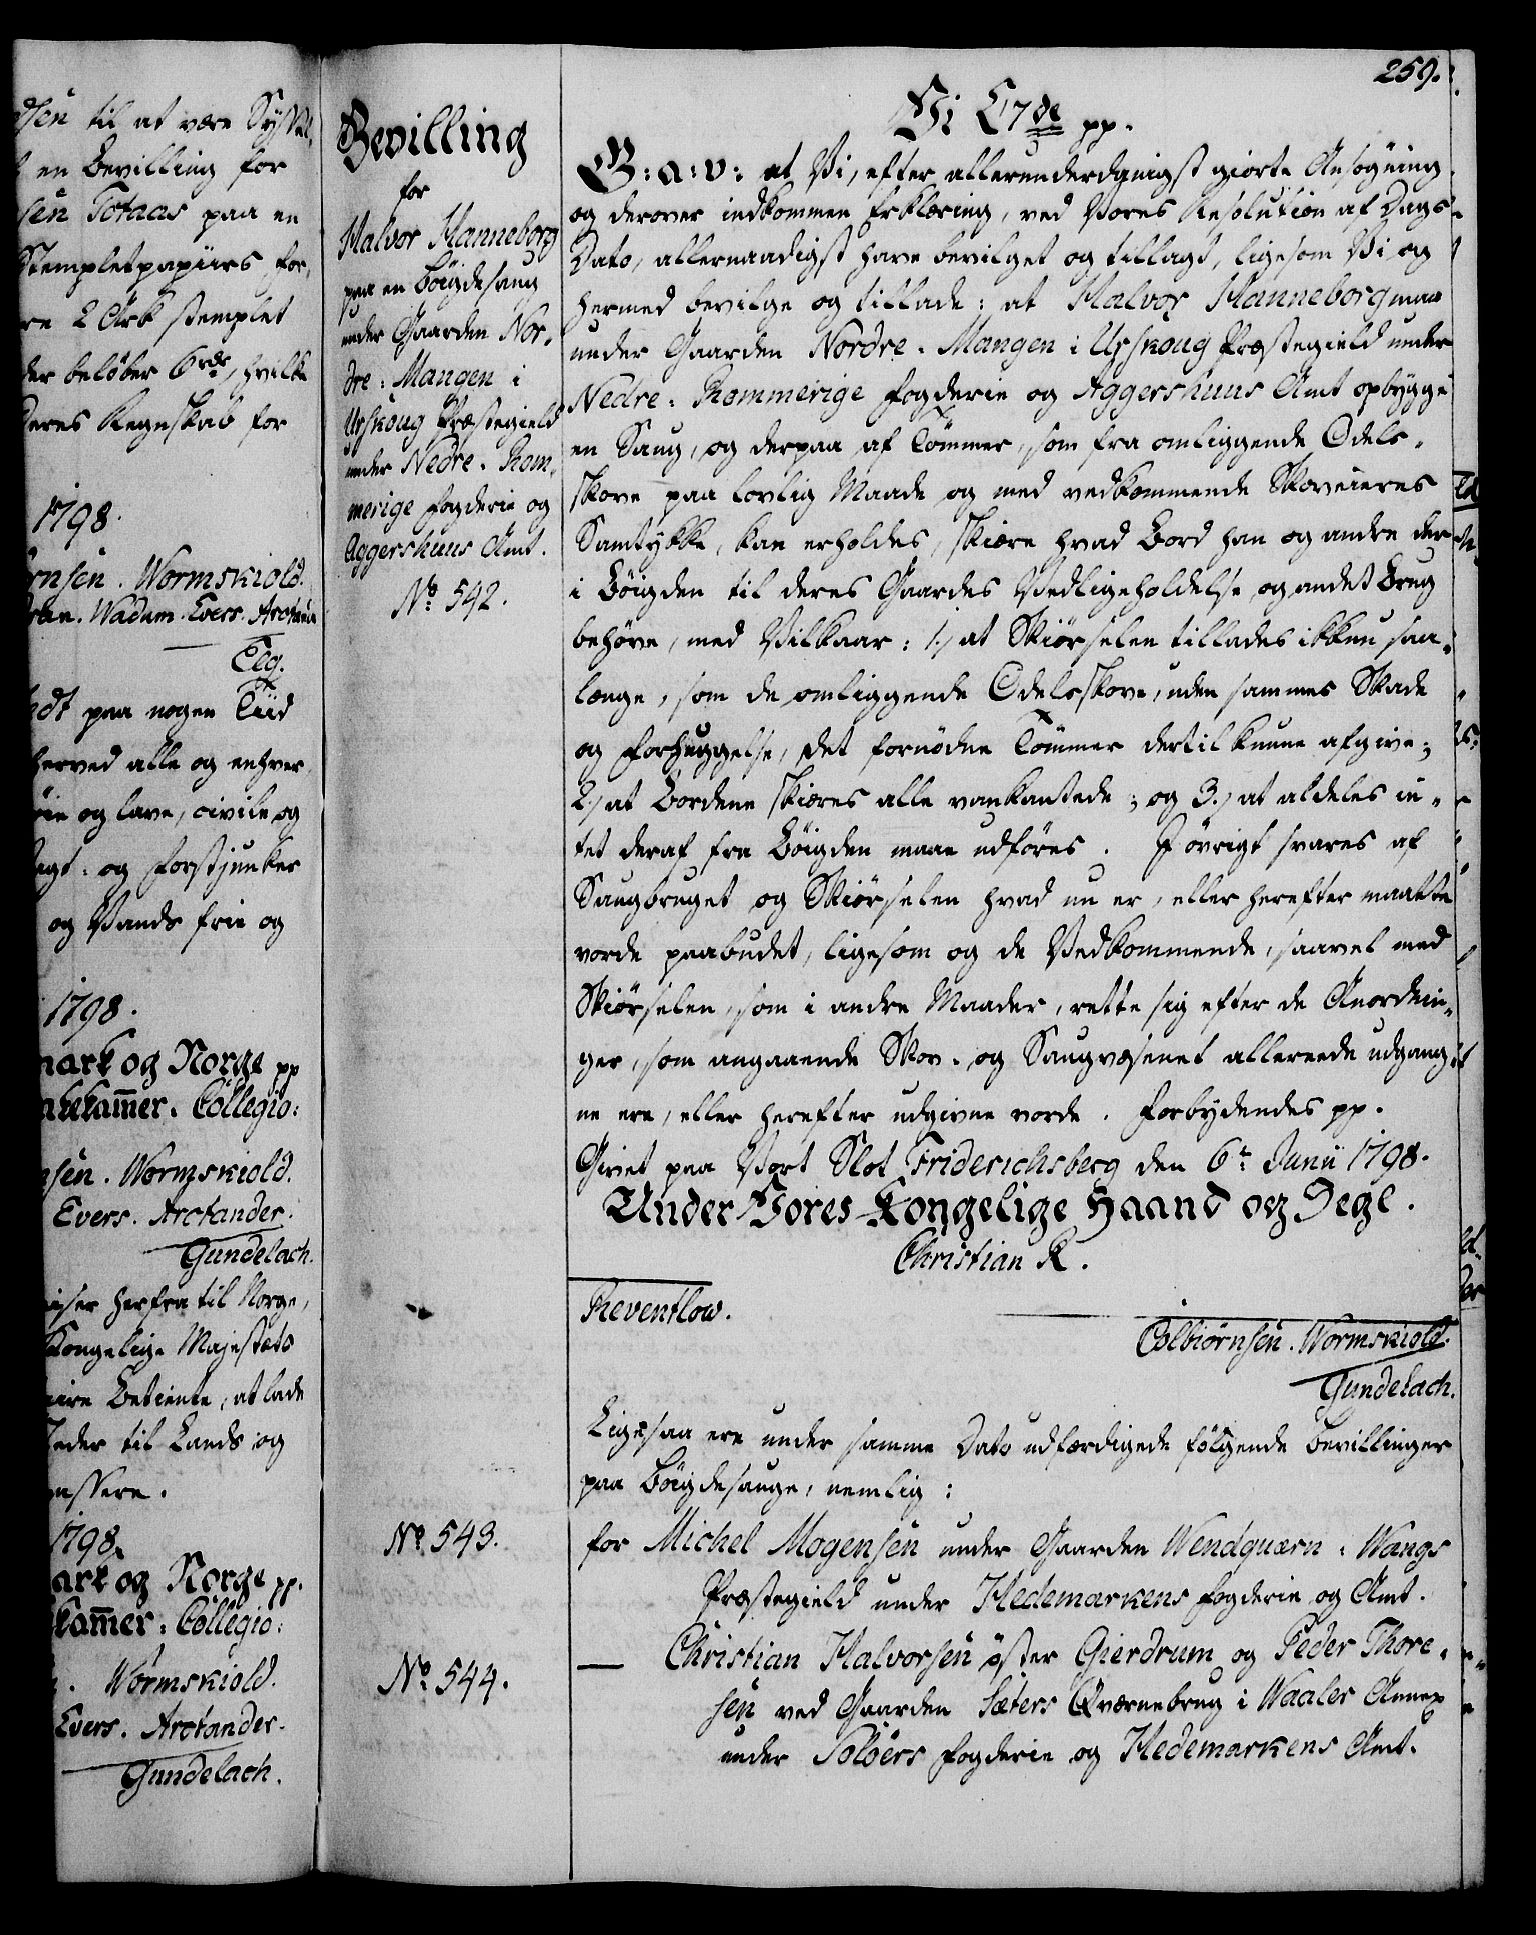 259.
dsen til at være Sysk
en Bevilling for
sen Totaas paa en
Stempletpapiirs for,
re 2 Ark stemplet
der beløber 6 rdr, hvilke
deres Regnskab for
1798.
ørnsen. Wormskiold.
Wadum. Evers. Arctander
Teg.
edt paa nogen Tiid
herved alle og enhver,
øie og lave, civile og
Jagt- og Forstjunker
og Vands frie og
1798.
mark og Norge pp
tekamer-Collegio:
nsen. Wormskiold.
Evers. Arctander.
Gundelach.
iser herfra til Norge,
Kongelige Majestæts
taire Betiente, at lade
Steder til Lands og
passere.
1798.
ark og Norge pp.
kamer-Collegio:
Wormskiold.
Evers. Arctander.
Gundelach.
Bevilling
for
Halvor Hanneborg
paa en Bøigdesaug
under Gaarden Nor-
dre-Mangen i
Urskoug Præstegield
under Nedre-Rom-
merige Fogderie og
Aggershuus Amt.
No. 542.
Vi C7de pp.
G: a: v: at Vi, efter allerunderdanigst giorte Ansøgning
og derover indkommen Erklæring, ved Vores Resolution af Dags
Dato, allernaadigst have bevilget og tilladt, ligesom Vi og
hermed bevilge og tillade: at Halvor Hanneborg maae
under Gaarden Nordre-Mangen i Urskoug Præstegield under
Nedre-Rommerige Fogderie og Aggershuus Amt opbygge
en Saug, og derpaa af Tømmer, som fra omliggende Odels-
skove paa lovlig Maade og med vedkommende Skoveieres
Samtykke, kan erholdes, skiære hvad Bord han og andre der
i Bøigden til deres Gaardes Vedligeholdelse og andet Brug
behøve, med Vilkaar: 1.) at Skiørselen tillades ikkun saa-
længe, som de omliggende Odelsskove, uden sammes Skade
og Forhuggelse, det fornødne Tømmer dertil kunne afgive;
2.) at Bordene skiæres alle vankantede; og 3.) at aldeles in-
tet deraf fra Bøigden maae udføres. I øvrigt svares af
Saugbruget og Skiørselen hvad nu er, eller herefter maatte
vorde paabudet, ligesom og de Vedkommende, saavel med
Skiørselen, som i andre Maader, rette sig efter de Anordnin-
ger, som angaaende Skov- og Saugvæsenet allereede udgang-
ne ere, eller herefter udgivne vorde. Forbydendes pp.
Givet paa Vort Slot Friderichsberg den 6te Junii 1798.
Under Vores Kongelige Haand og Segl.
Christian R.
Reventlow.
Colbiørnsen. Wormskiold.
Gundelach.
Ligesaa ere under samme Dato udfærdigede følgende Bevillinger
paa Bøigdesauge, nemlig:
No. 543.
for Michel Mogensen under Gaarden Wendquærn i Wangs
Præstegield under Hedemarkens Fogderie og Amt.
No. 544.
— Christian Halvorsen øster Gierdrum og Peder Thore-
sen ved Gaarden Sæters Qværnebrug i Waaler Annex
under Soløers Fogderie og Hedemarkens Amt.